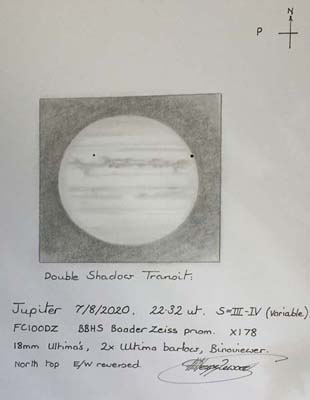 N
P
Double Shadow Transit:
Jupiter 7/8/2020. 22:32 ut. S=III-IV (Variable)
FC100DZ BBHS Baader Zeiss prism. X178
18mm Ultima's, 2x Ultima barlow, Binoviewer.
North top E/W reversed.